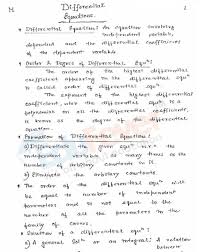 Differential
Equations.
• Differential Equation: An equation involving
independent variable,
dependent and the differential coefficients
of the dependent variable
• Order & Degree of Differential Equⁿ:
The order of the highest differential
coefficient appearing in the differential equⁿ
is called order of differential equⁿ.
The exponent of the highest differential
coefficient, when the differential equⁿ is a
polynomial in all the differential coefficient,
is known as the degree of the differential
equation.
• Formation of Differential Equation:
① Differentiate the given equⁿ w.r.t the
independent variable as many times as the
number of arbitrary constants in it.
② Eliminate the arbitrary constants.
• The order of the differential equⁿ will
be equal to number of independent
parameters and is not equal to the
number of all the parameters in the
family of curves.
• Solution of a differential equⁿ:
① A general solⁿ or an integral: A relation
between